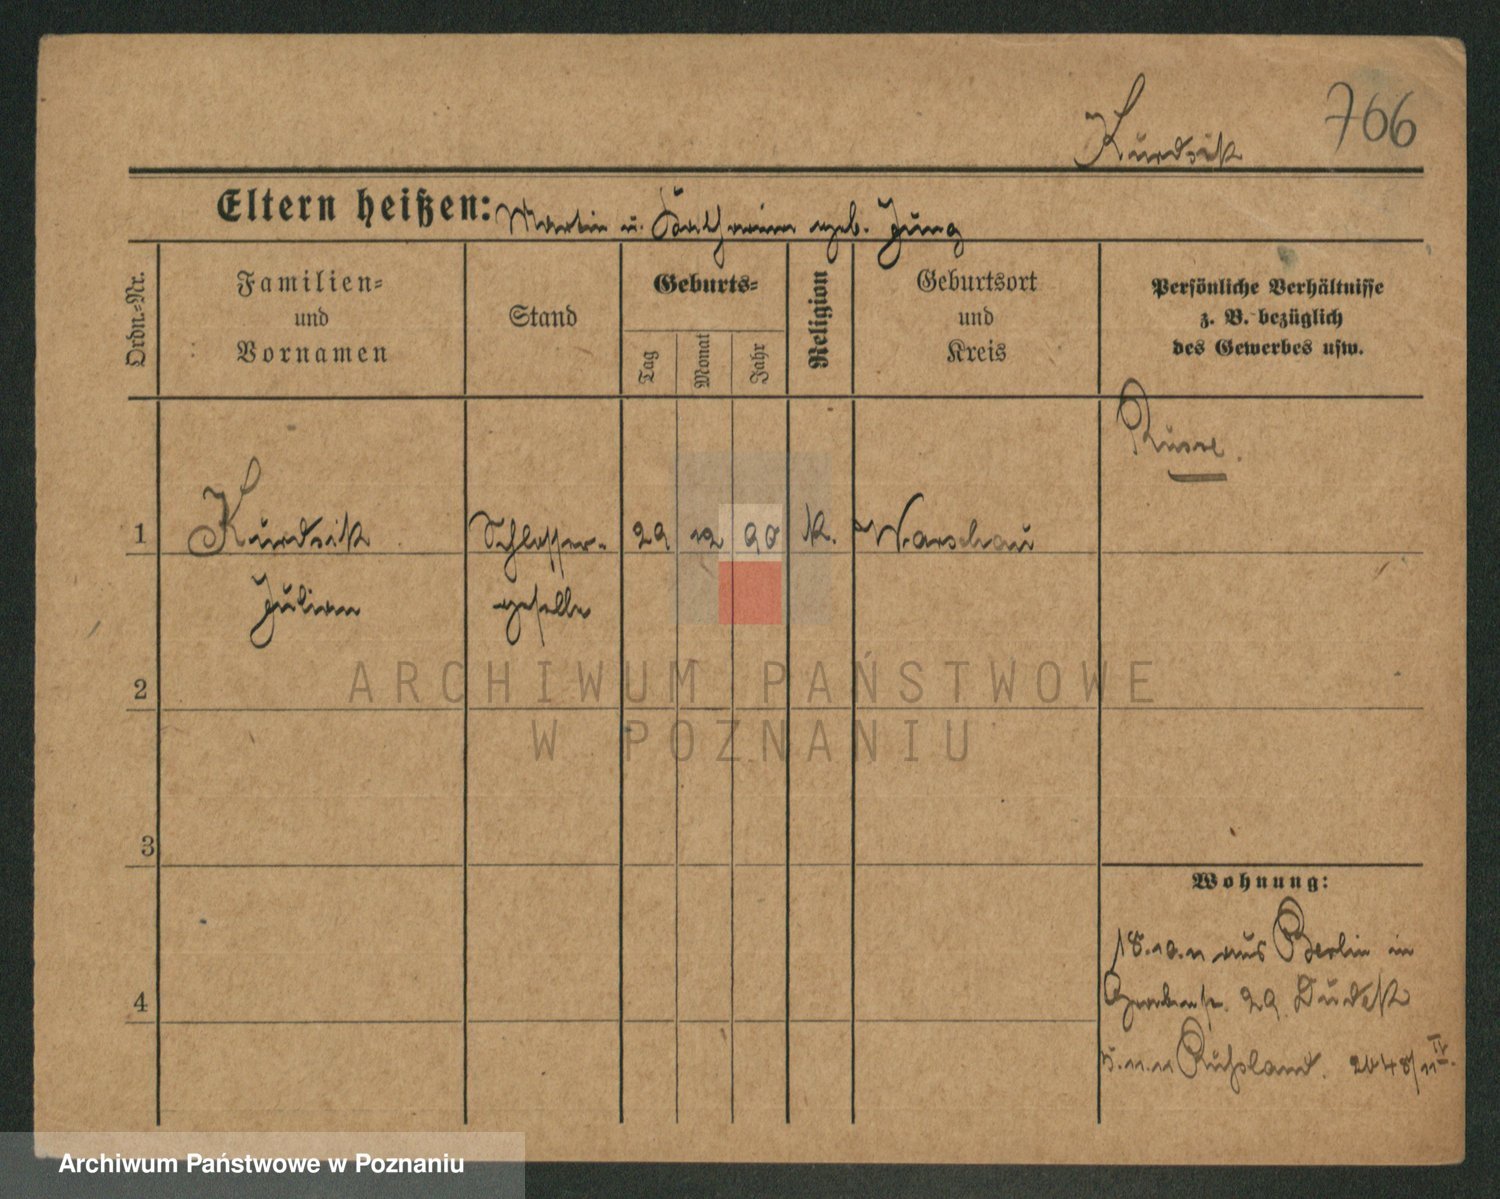 766
Kurdsik
Eltern heißen: Martin u. Katharina geb. Jung
Ordn.-Nr.
Familien-
und
Vornamen
Stand
Geburts-
Tag
Monat
Jahr
Religion
Geburtsort
und
Kreis
Persönliche Verhältnisse
z. B. bezüglich
des Gewerbes usw.
Russe.
1 Kurdsik Schlosser- 29 12 90 K. Warschau
Julian geselle
2
ARCHIWUM PAŃSTWOWE
W POZNANIU
3
Wohnung:
18.10.11 aus Berlin in
Grabenstr. 29
4
5.11.11 Rußland. 2048/11 IV.
Archiwum Państwowe w Poznaniu